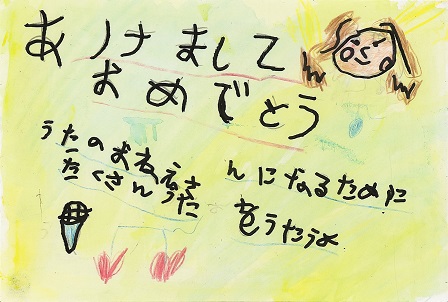 あけまして
おめでとう
うたのおねえさんになるために
たくさんうたをうたうよ